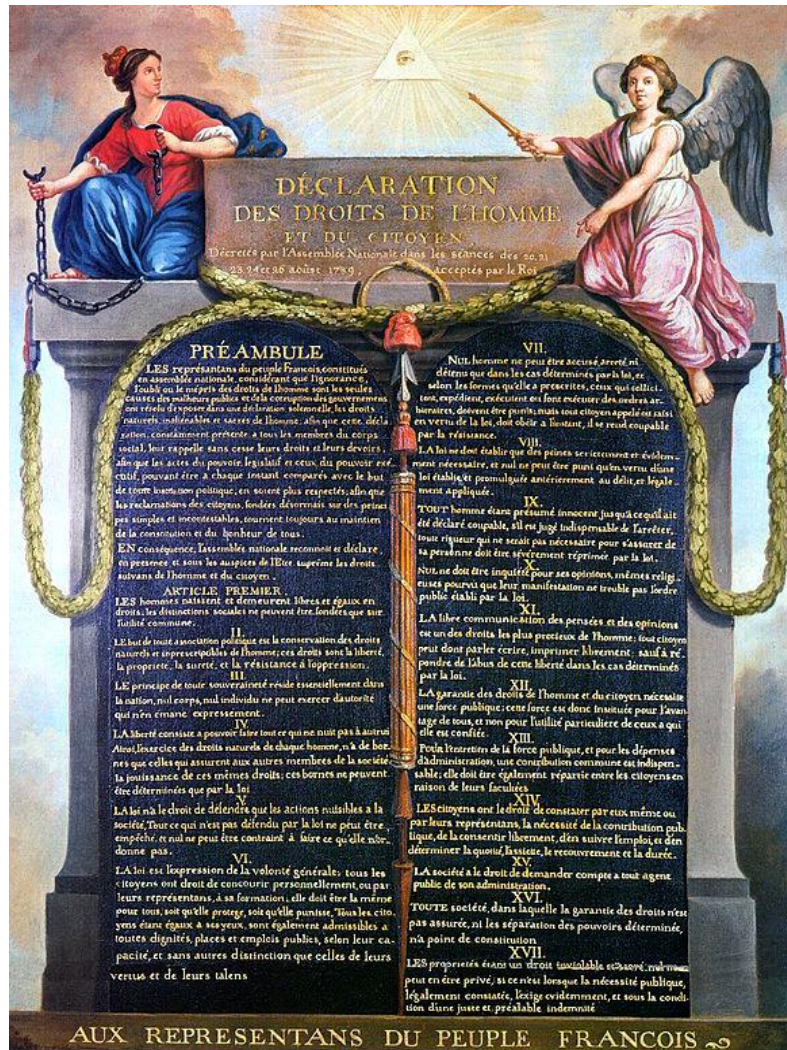 DÉCLARATION
DES DROITS DE L'HOMME
ET DU CITOYEN,
Décretés par l'Assemblée Nationale dans les séances des 20, 21
23, 24 et 26 août 1789, acceptés par le Roi
PRÉAMBULE
LES représantans du peuple François, constitués
en assemblée nationale, considérant que l'ignorance,
l'oubli ou le mépris des droits de l'homme sont les seules
causes des malheurs publics et de la corruption des gouvernemens
ont résolu d'exposer dans une déclaration solemnelle, les droits
naturels, inaliénables et sacrés de l'homme; afin que cette décla
ration, constamment présente a tous les membres du corps
social, leur rappelle sans cesse leurs droits et leurs devoirs,
afin que les actes du pouvoir législatif et ceux du pouvoir exé
cutif, pouvant être a chaque instant comparés avec le but
de toute institution politique, en soient plus respectés; afin que
les reclamations des citoyens, fondées désormais sur des princi
pes simples et incontestables, tournent toujours au maintien
de la constitution et du bonheur de tous.
EN conséquence, l'assemblée nationale reconnoit et déclare,
en presence et sous les auspices de l'Etre suprême les droits
suivans de l'homme et du citoyen.
ARTICLE PREMIER.
LES hommes naissent et demeurent libres et égaux en
droits; les distinctions sociales ne peuvent être fondées que sur
l'utilité commune.
II.
LE but de toute association politique est la conservation des droits
naturels et inprescriptibles de l'homme; ces droits sont la liberté,
la propriété, la sureté, et la résistance à l'oppression.
III.
LE principe de toute souveraineté réside essentiellement dans
la nation, nul corps, nul individu ne peut exercer d'autorité
qui n'en émane expressement.
IV.
LA liberté consiste a pouvoir faire tout ce qui ne nuit pas à autrui
Ainsi, l'exercice des droits naturels de chaque homme, n'a de bor
nes que celles qui assurent aux autres membres de la société
la jouissance de ces mêmes droits; ces bornes ne peuvent
être déterminées que par la loi
V.
LA loi n'a le droit de défendre que les actions nuisibles a la
société, Tout ce qui n'est pas défendu par la loi ne peut être
empêché, et nul ne peut être contraint à faire ce qu'elle n'or
donne pas.
VI.
LA loi est l'expression de la volonté générale; tous les
citoyens ont droit de concourir personnellement, ou par
leurs représentans, à sa formation; elle doit être la même
pour tous, soit qu'elle protege, soit qu'elle punisse, Tous les cito
yens étant égaux a ses yeux, sont également admissibles a
toutes dignités, places et emplois publics, selon leur ca
pacité, et sans autres distinction que celles de leurs
vertus et de leurs talens
VII.
NUL homme ne peut être accusé, arreté, ni
détenu que dans les cas déterminés par la loi, et
selon les formes qu'elle a prescrites, ceux qui sollici-
tent, expédient, exécutent ou font exécuter des ordres ar-
bitraires, doivent être punis; mais tout citoyen appelé ou saisi
en vertu de la loi, doit obéir a l'instant, il se rend coupable
par la résistance.
VIII.
LA loi ne doit établir que des peines strictement et évidem-
ment nécessaire, et nul ne peut être puni qu'en vertu d'une
loi établie et promulguée antérierement au délit, et légale-
ment appliquée.
IX.
TOUT homme étant présumé innocent jusqu'à ce qu'il ait
été déclaré coupable, s'il est jugé indispensable de l'arrêter,
toute rigueur qui ne serait pas nécessaire pour s'assurer de
sa personne doit être sévèrement réprimée par la loi.
X.
NUL ne doit être inquiété pour ses opinions, mêmes religi-
euses pourvu que leur manifestation ne trouble pas l'ordre
public établi par la loi.
XI.
LA libre communication des pensées et des opinions
est un des droits les plus precieux de l'homme; tout citoyen
peut dont parler écrire, imprimer librement; sauf à ré-
pondre de l'abus de cette liberté dans les cas déterminés
par la loi.
XII.
LA garantie des droits de l'homme et du citoyen nécessite
une force publique; cette force est donc instituée pour l'avan
tage de tous, et non pour l'utilité particuliere de ceux a qui
elle est confiée.
XIII.
Pour l'entretien de la force publique, et pour les dépenses
d'administration, une contribution commune est indispen-
sable; elle doit être également répartie entre les citoyens en
raison de leurs facultées
XIV.
LES citoyens ont le droit de constater par eux même ou
par leurs représentans, la nécessité de la contribution pub-
lique, de la consentir librement, d'en suivre l'emploi, et d'en
déterminer la quotité, l'assiette, le recouvrement et la durée.
XV.
LA société a le droit de demander compte a tout agent
public de son administration.
XVI.
TOUTE société, dans laquelle la garantie des droits n'est
pas assurée, ni les séparation des pouvoirs déterminée,
n'a point de constitution
XVII.
LES proprietés étant un droit inviolable et sacré, nul ne
peut en être privé, si ce n'est lorsque la nécessité publique,
légalement constatée, l'exige evidemment, et sous la condi
tion d'une juste et préalable indemnité
AUX REPRESENTANS DU PEUPLE FRANCOIS